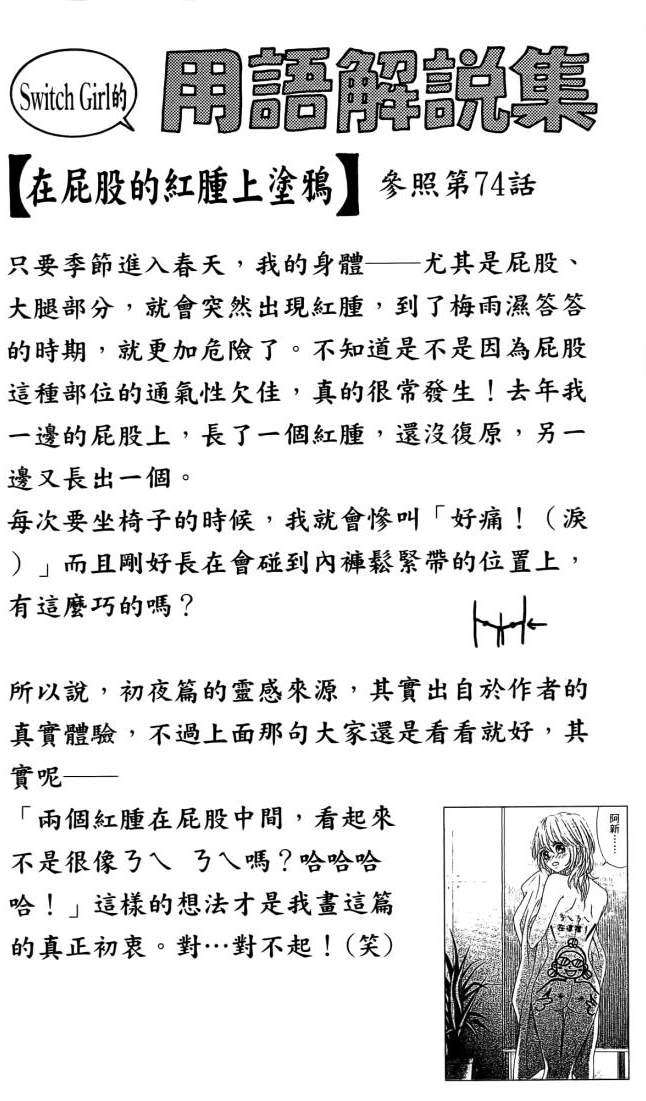 Switch Girl的
用語解說集
【在屁股的紅腫上塗鴉】 參照第74話
只要季節進入春天，我的身體——尤其是屁股、
大腿部分，就會突然出現紅腫，到了梅雨濕答答
的時期，就更加危險了。不知道是不是因為屁股
這種部位的通氣性欠佳，真的很常發生！去年我
一邊的屁股上，長了一個紅腫，還沒復原，另一
邊又長出一個。
每次要坐椅子的時候，我就會慘叫「好痛！（淚
）」而且剛好長在會碰到內褲鬆緊帶的位置上，
有這麼巧的嗎？
所以說，初夜篇的靈感來源，其實出自於作者的
真實體驗，不過上面那句大家還是看看就好，其
實呢——
「兩個紅腫在屁股中間，看起來
不是很像ㄋㄟ ㄋㄟ嗎？哈哈哈
哈！」這樣的想法才是我畫這篇
的真正初衷。對…對不起！(笑)
阿新……
ㄋㄟㄋㄟ
在這裡！